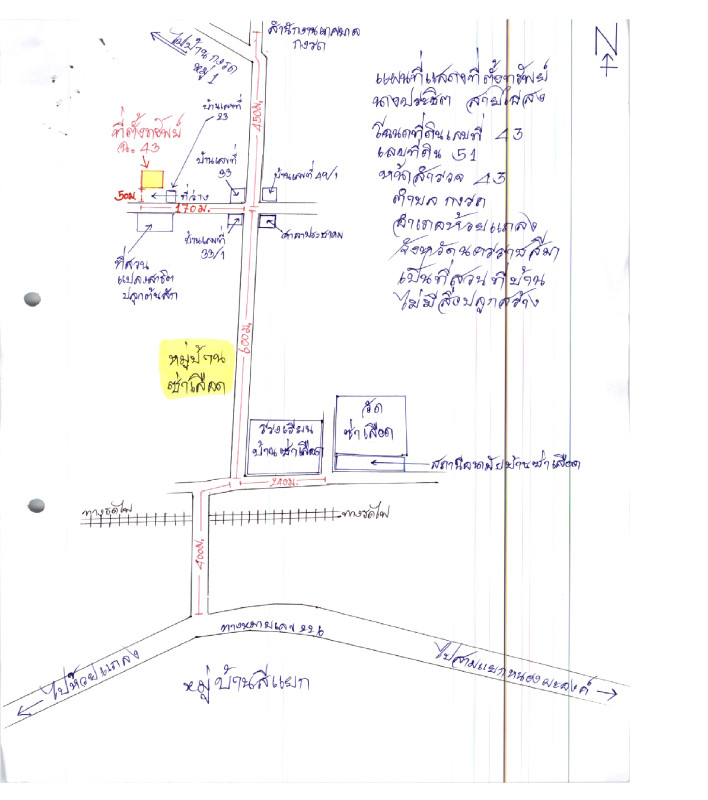 สำนักงานเทศบาล
กงรถ
ไปบ้านกงรถ
หมู่ 1
N
แผนที่แสดงที่ตั้งทรัพย์
นางประชิต สายไธสง
โฉนดที่ดินเลขที่ 43
เลขที่ดิน 51
หน้าสำรวจ 43
ตำบล กงรถ
อำเภอห้วยแถลง
จังหวัดนครราชสีมา
เป็นที่สวน ที่บ้าน
ไม่มีสิ่งปลูกสร้าง
450ม.
ที่ตั้งทรัพย์
ฉ. 43
บ้านเลขที่
23
บ้านเลขที่
93
บ้านเลขที่ 42/1
50ม
ที่ว่าง
170ม.
บ้านเลขที่
33/1
ศาลาประชาคม
ที่สวน
แปลงสาธิต
ปลูกต้นสัก
600ม.
หมู่บ้าน
เช่าเลือด
โรงเรียน
บ้านเช่าเลือด
วัด
เช่าเลือด
สถานีอนามัยบ้านเช่าเลือด
240ม.
ทางรถไฟ
ทางรถไฟ
400ม.
ทางหลวงเลข 226
ไปห้วยแถลง
ไปสามแยกหนองมะลงค์
หมู่บ้านสี่แยก